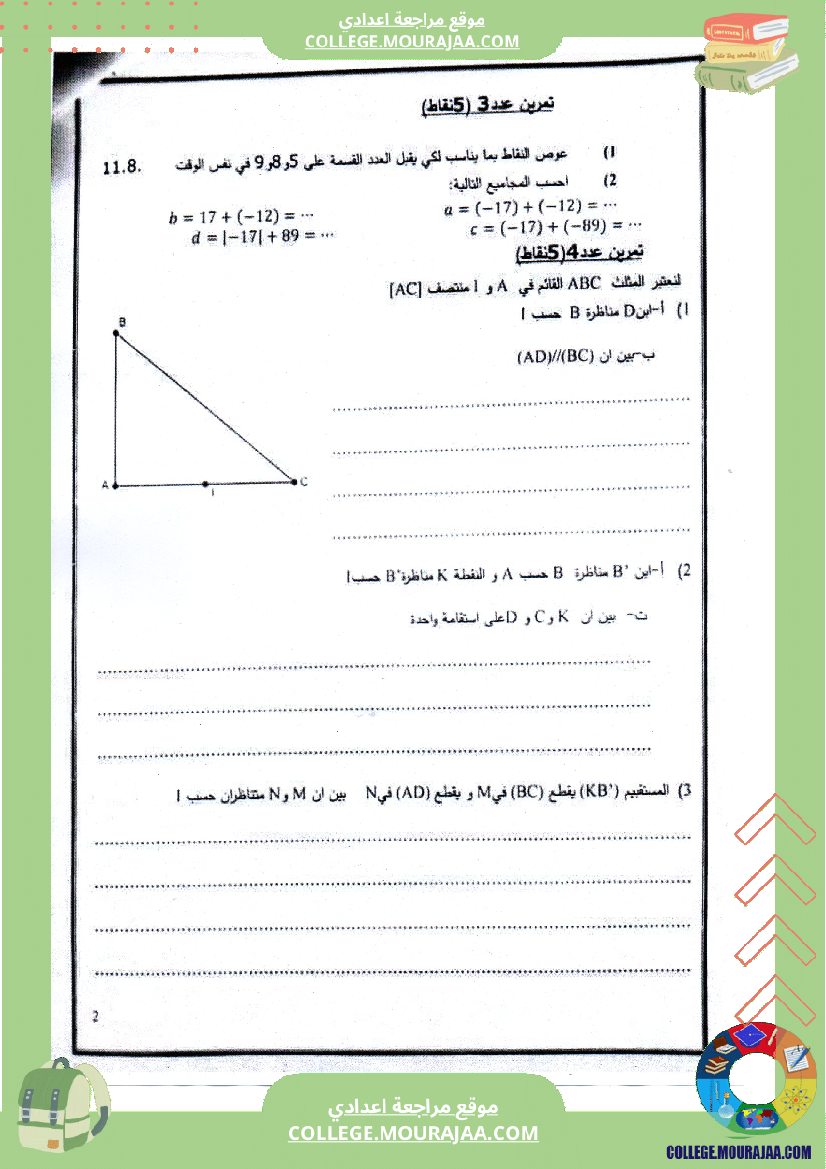 موقع مراجعة اعدادي
COLLEGE.MOURAJAA.COM
تمرين عدد3 (5نقاط)
1) عوض النقاط بما يناسب لكي يقبل العدد القسمة على 5و8و9 في نفس الوقت 11.8.
2) احسب المجاميع التالية:
a = (−17) + (−12) = ⋯ b = 17 + (−12) = ⋯
c = (−17) + (−89) = ⋯ d = |−17| + 89 = ⋯
تمرين عدد4(5نقاط)
لنعتبر المثلث ABC القائم في A و I منتصف [AC]
1) أ-ابنD مناظرة B حسب I
ب-بين ان (AD)//(BC)
B
A
I
C
2) أ-ابن B' مناظرة B حسب A و النقطة K مناظرةB' حسبI
ت- بين ان K وC و Dعلى استقامة واحدة
3) المستقيم (KB') يقطع (BC) فيM و يقطع (AD) فيN بين ان M وN متناظران حسب I
2
موقع مراجعة اعدادي
COLLEGE.MOURAJAA.COM
COLLEGE.MOURAJAA.COM